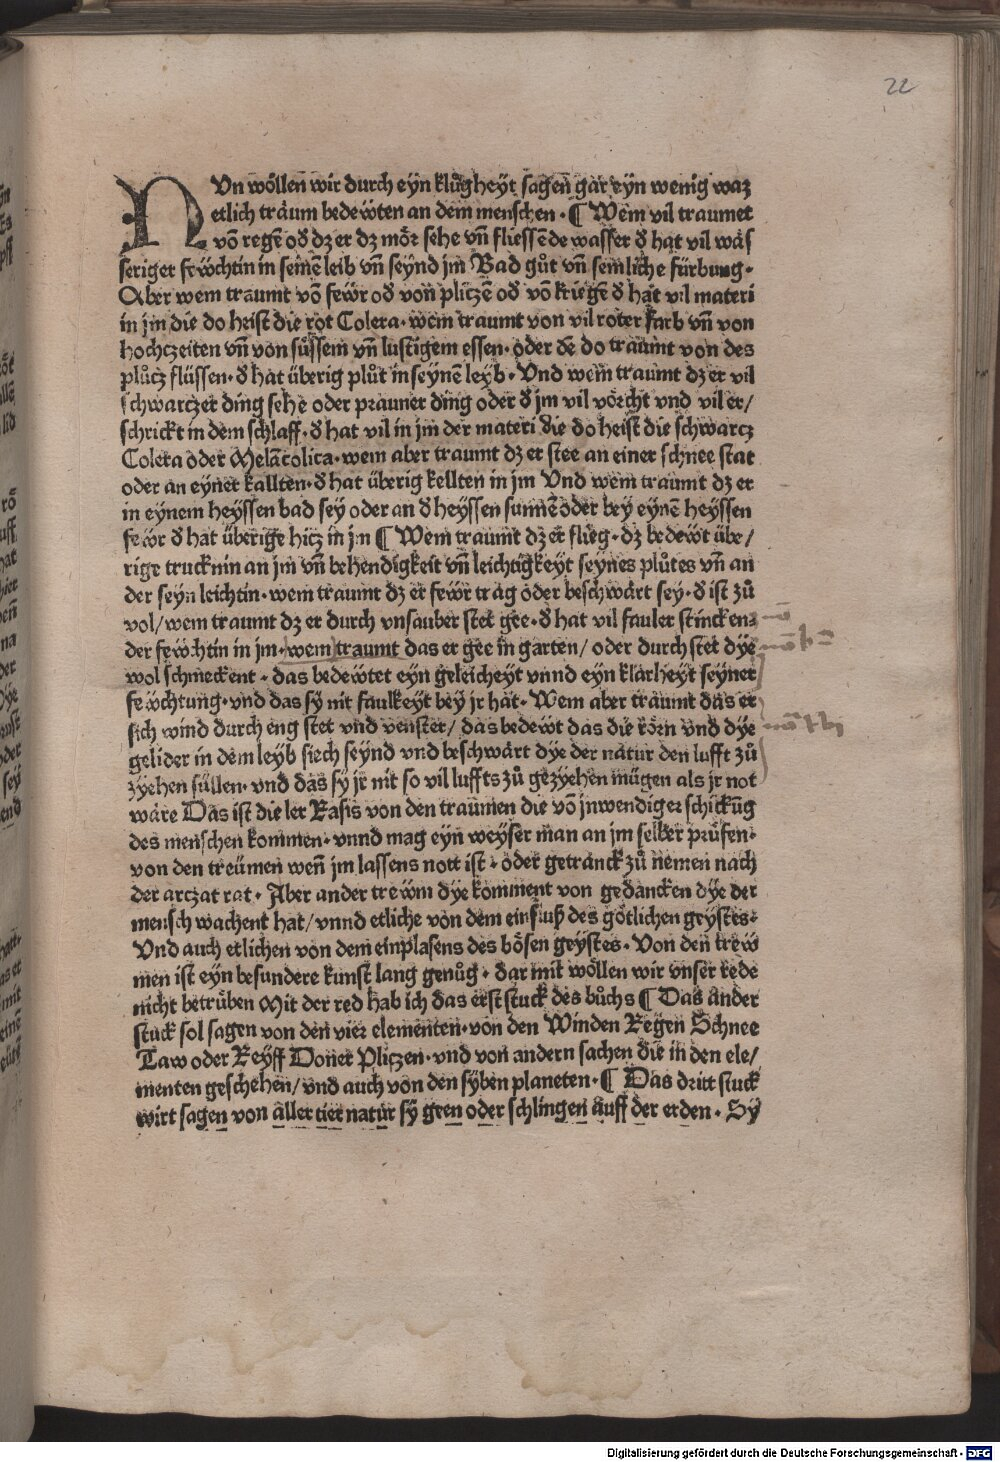 22
NUn wöllen wir durch eyn klůgheyt sagen gar eyn wenig waz
etlich träum bedewten an dem menschen · ¶ Wem vil traumet
võ regẽ oð dz er dz mör sehe vñ fliessẽde wasser ð hat vil wäs
seriger fewchtin in seinẽ leib vñ seynd jm Bad gůt vñ semliche fürbung·
Aber wem traumt võ fewr oð von plitzẽ oð võ kriegẽ ð hat vil materi
in jm die do heist die rot Colera· wem traumt von vil roter farb vñ von
hochczeiten vñ von sůssem vñ lustigem essen· oder dẽ do traumt von des
plůtz flüssen· ð hat überig plůt in seynẽ leyb· Vnd wem traumt dz er vil
schwarczer ding sehe oder prauner ding oder ð jm vil vörcht vnd vil er/
schrickt in dem schlaff· ð hat vil in jm der materi die do heist die schwarcz
Colera oder Melãcolica· wem aber traumt dz er stee an einer schnee stat
oder an eyner kallten· ð hat überig kellten in jm Vnd wem traumt dz er
in eynem heyssen bad sey oder an ð heyssen sunnẽ oder bey eynẽ heyssen
fewr ð hat überige hitz in jm ¶ Wem traumt dz er flieg· dz bedewt übe/
rige trucknin an jm vñ behendigkeit vñ leichtigkeyt seynes plůtes vñ an
der seyn leichtin· wem traumt dz er fewr trag oder beschwärt sey· ð ist zů
vol/ wem traumt dz er durch vnsauber stet gee· ð hat vil fauler stincken⸗
der fewchtin in jm· wem traumt das er gee in garten/ oder durch stet dye
wol schmeckent · das bedewtet eyn geleicheyt vnnd eyn klarheyt seyner
fewchtung· vnd das sy nit faulkeyt bey jr hat· Wem aber traumt das er
sich wind durch eng stet vnd venster/ das bedewt das die rörn vnd dye
gelider in dem leyb siech seynd vnd beschwärt dye der natur den lufft zů
zyehen süllen· vnd das sy jr nit so vil luffts zů gezyehen mügen als jr not
wäre Das ist die ler Rasis von den traumen die võ jnwendiger schickũg
des menschen kommen· vnnd mag eyn weyser man an jm selber prüfen·
von den treümen weñ jm lassens nott ist · oder getranck zů nemen nach
der arczat rat· Aber ander trewm dye komment von gedancken dye der
mensch wachent hat/ vnnd etliche von dem einfluß des götlichen geystes·
Vnd auch etlichen von dem einplasens des bösen geystes· Von den trew
men ist eyn besundere kunst lang genůg · dar mit wöllen wir vnser rede
nicht betrůben Mit der red hab ich das erst stuck des bůchs ¶ Das ander
stuck sol sagen von den vier elementen· von den Winden Regen Schnee
Taw oder Reyff Doner Plitzen· vnd von andern sachen die in den ele/
menten geschehen/ vnd auch von den syben planeten· ¶ Das dritt stuck
wirt sagen von aller tier natur sy geen oder schlingen auff der erden· Sy
Digitalisierung gefördert durch die Deutsche Forschungsgemeinschaft - DFG